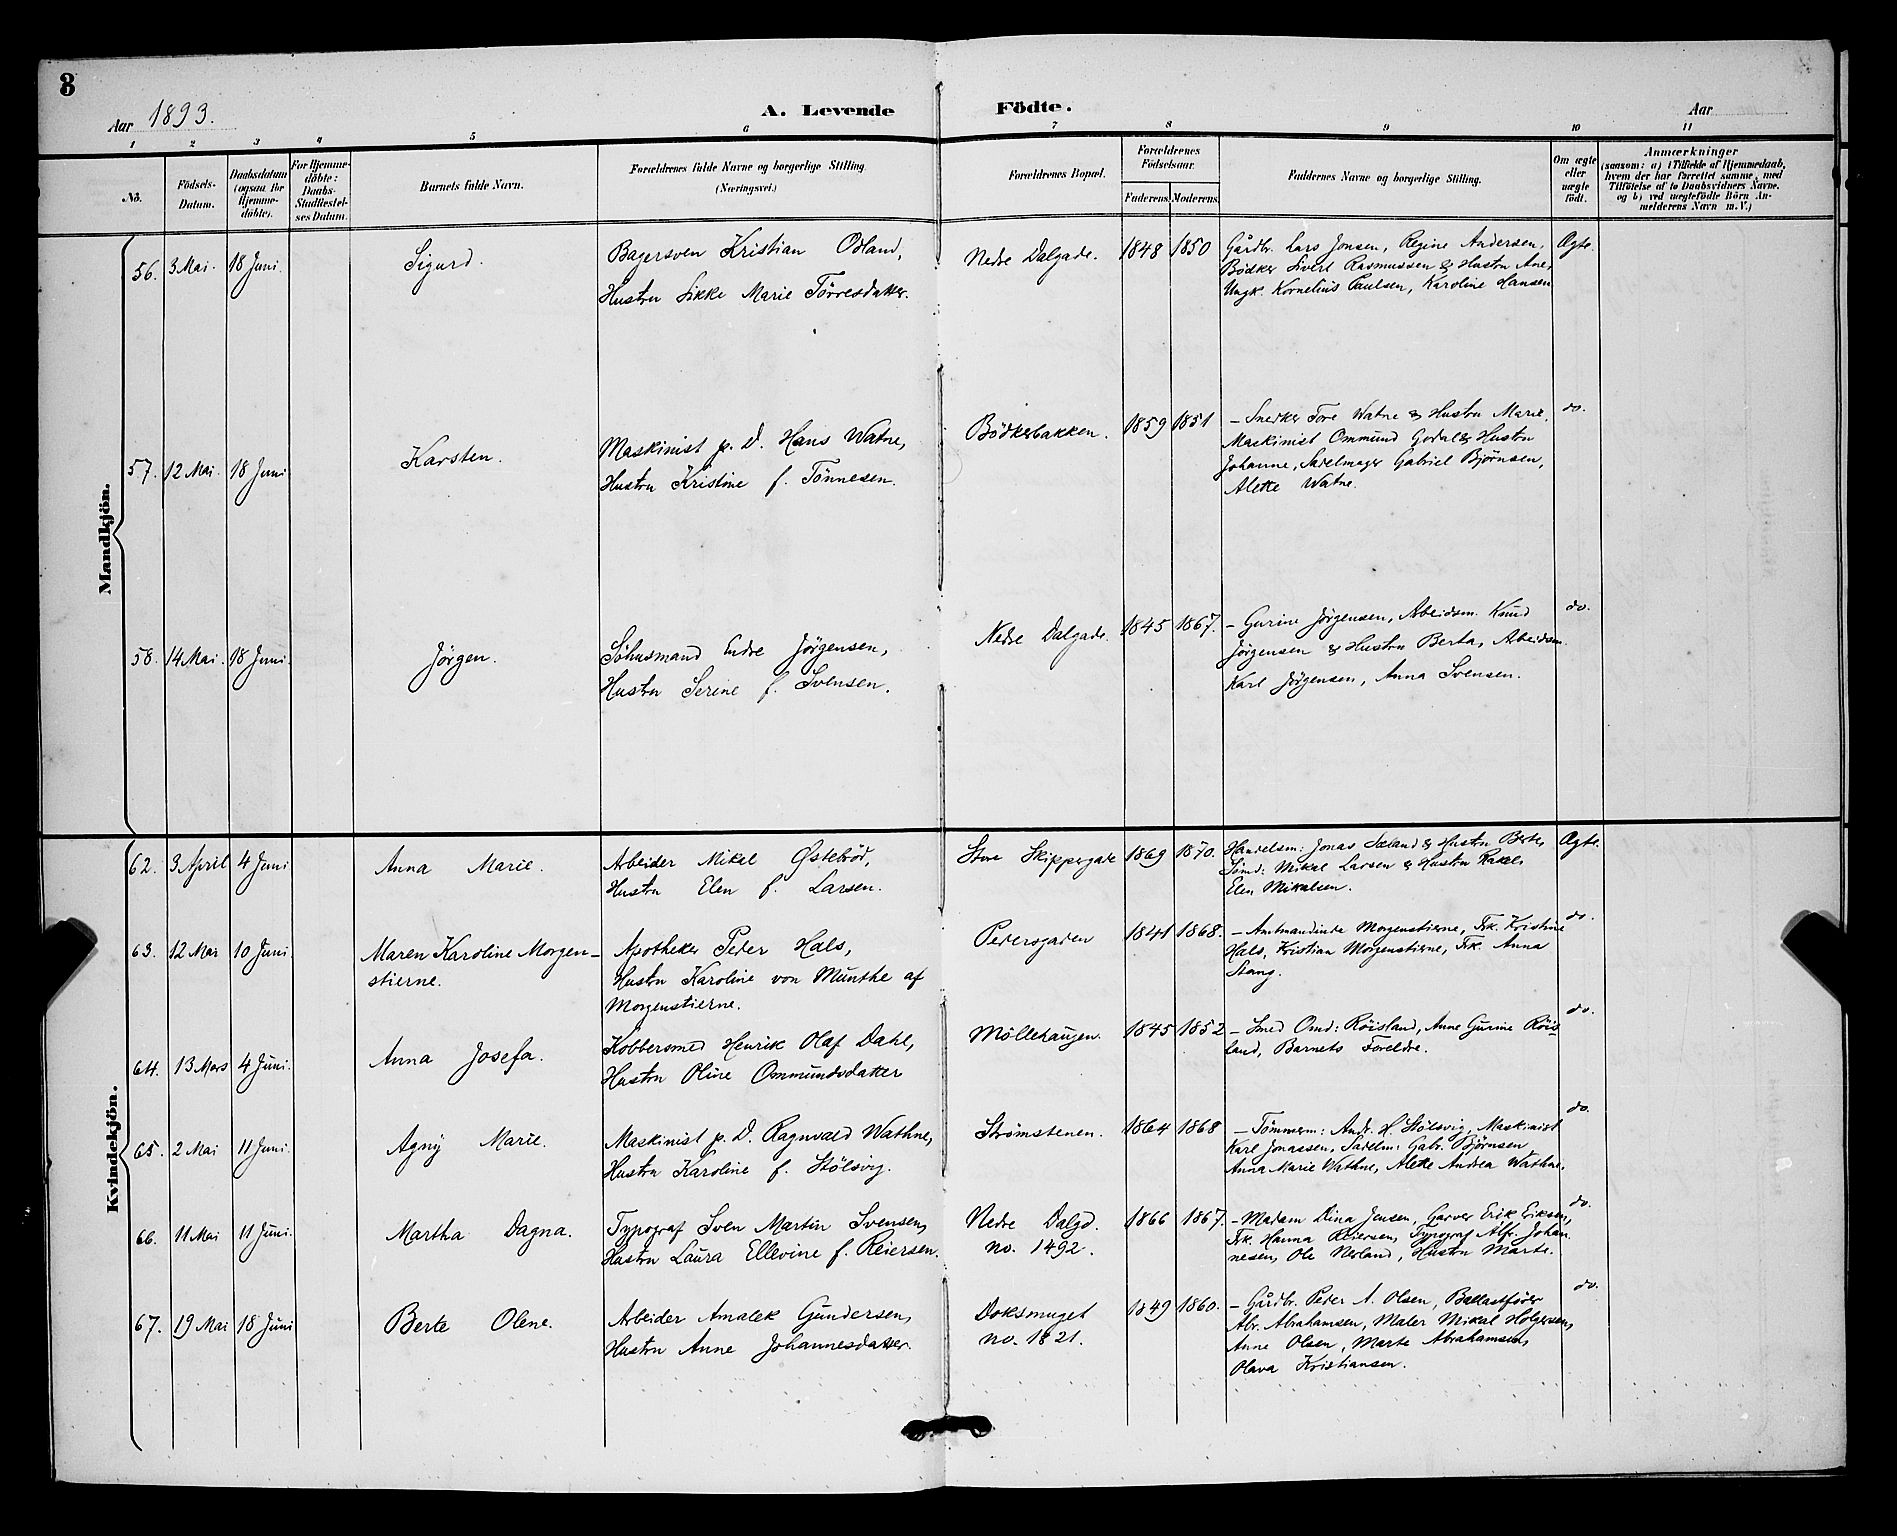 8
Aar 1893.
A. Levende Födte.
Aar
1 2 3 4 5 6 7 8 9 10 11
No.
Födsels-Datum.
Daabsdatum (ogsaa for Hjemme-döbte).
For Hjemme-döbte: Daabs-Stadfæstel-ses Datum.
Barnets fulde Navn.
Forældrenes fulde Navne og borgerlige Stilling.
(Næringsvei.)
Forældrenes Bopæl.
Forældrenes Födselsaar.
Faderens Moderens
Faddernes Navne og borgerlige Stilling.
Om ægte eller uægte födt.
Anmærkninger
(saasom: a) i Tilfælde af Hjemmedaab,
hvem der har forrettet samme, med
Tilföielse af to Daabsvidners Navne,
og b) ved uægtefödte Börn An-
melderens Navn m. V.)
Mandkjön.
56. 3 Mai. 18 Juni. Sigurd.
Bagersven Kristian Odland,
Hustru Sikke Marie Törresdatter.
Nedre Dalgade. 1848 1850
Gårdbr. Lars Jonsen, Regine Andersen,
Bödker Sivert Rasmussen & Hustru Ane,
Ungk. Kornelius Paulsen, Karoline Hansen
Ægte.
57. 12 Mai. 18 Juni Karsten.
Maskinist p. D. Hans Watne,
Hustru Kristine f. Tönnesen.
Bödkerbakken. 1859 1851
- Snedker Tore Watne & Hustru Marie,
Maskinist Ommund Godal & Hustru
Johanne, Sadelmager Gabriel Bjørnsen,
Alette Watne.
do.
58. 14 Mai. 18 Juni. Jörgen.
Söhusmand Endre Jörgensen,
Hustru Serine f. Svensen.
Nedre Dalgade. 1845 1867.
- Gurine Jörgensen, Arbeidsm. Knud
Jörgensen & Hustru Berta, Abeidsm.
Karl Jörgensen, Anna Svensen.
do.
Kvindekjön.
62. 3 April 4 Juni Anna Marie.
Arbeider Mikel Østebröd,
Hustru Elen f. Larsen.
Store Skippergade 1869 1870.
Handelsm: Jonas Sæland & Hustru Berte,
Sömd: Mikal Larsen & Hustru Rakel,
Elen Mikalsen.
Ægte.
63. 12 Mai 10 Juni. Maren Karoline Morgen-
stierne.
Apotheker Peder Hals,
Hustru Karoline von Munthe af
Morgenstierne.
Pedersgaden 1841 1868.
- Amtmandinde Morgenstierne, Frk. Kristine
Hals, Kristian Morgenstierne, Frk. Anna
Stang.
do.
64. 13 Mars 4 Juni. Anna Josefa.
Kobbersmed Henrik Olaf Dahl,
Hustru Oline Ommundsdatter
Möllehaugen. 1845 1852
- Smed Omd: Röisland, Anne Gurine Röis-
land, Barnets Foreldre.
do.
65. 2 Mai 11 Juni. Agny Marie.
Maskinist p. D. Ragnvald Wathne,
Hustru Karoline f. Stölsvig.
Strömstenen. 1864 1868
- Tömmerm: Andr. H. Stölsvig, Maskinist
Karl Jonassen, Sadelm: Gabr. Bjørnsen
Anna Marie Wathne, Alette Andrea Wathne.
do.
66. 11 Mai 11 Juni. Martha Dagna.
Typograf Sven Martin Svensen,
Hustru Laura Ellevine f. Reiersen.
Nedre Dalgd.
no. 1492.
1866 1867.
- Madam Dina Jensen, Garver Erik Eiksen,
Frk. Hanna Reiersen, Typograf Alfr. Johan
nesen, Ole Nerland, Hustru Marte.
do.
67. 19 Mai 18 Juni Berte Olene.
Arbeider Amalek Gundersen,
Hustru Anne Johannesdatter.
Doksmuget
no. 1821.
1849 1860.
- Gårdbr. Peder A. Olsen, Ballastförer
Abr. Abrahamsen, Maler Mikal Holgersen,
Anne Olsen, Marte Abrahamsen,
Olava Kristiansen.
do.